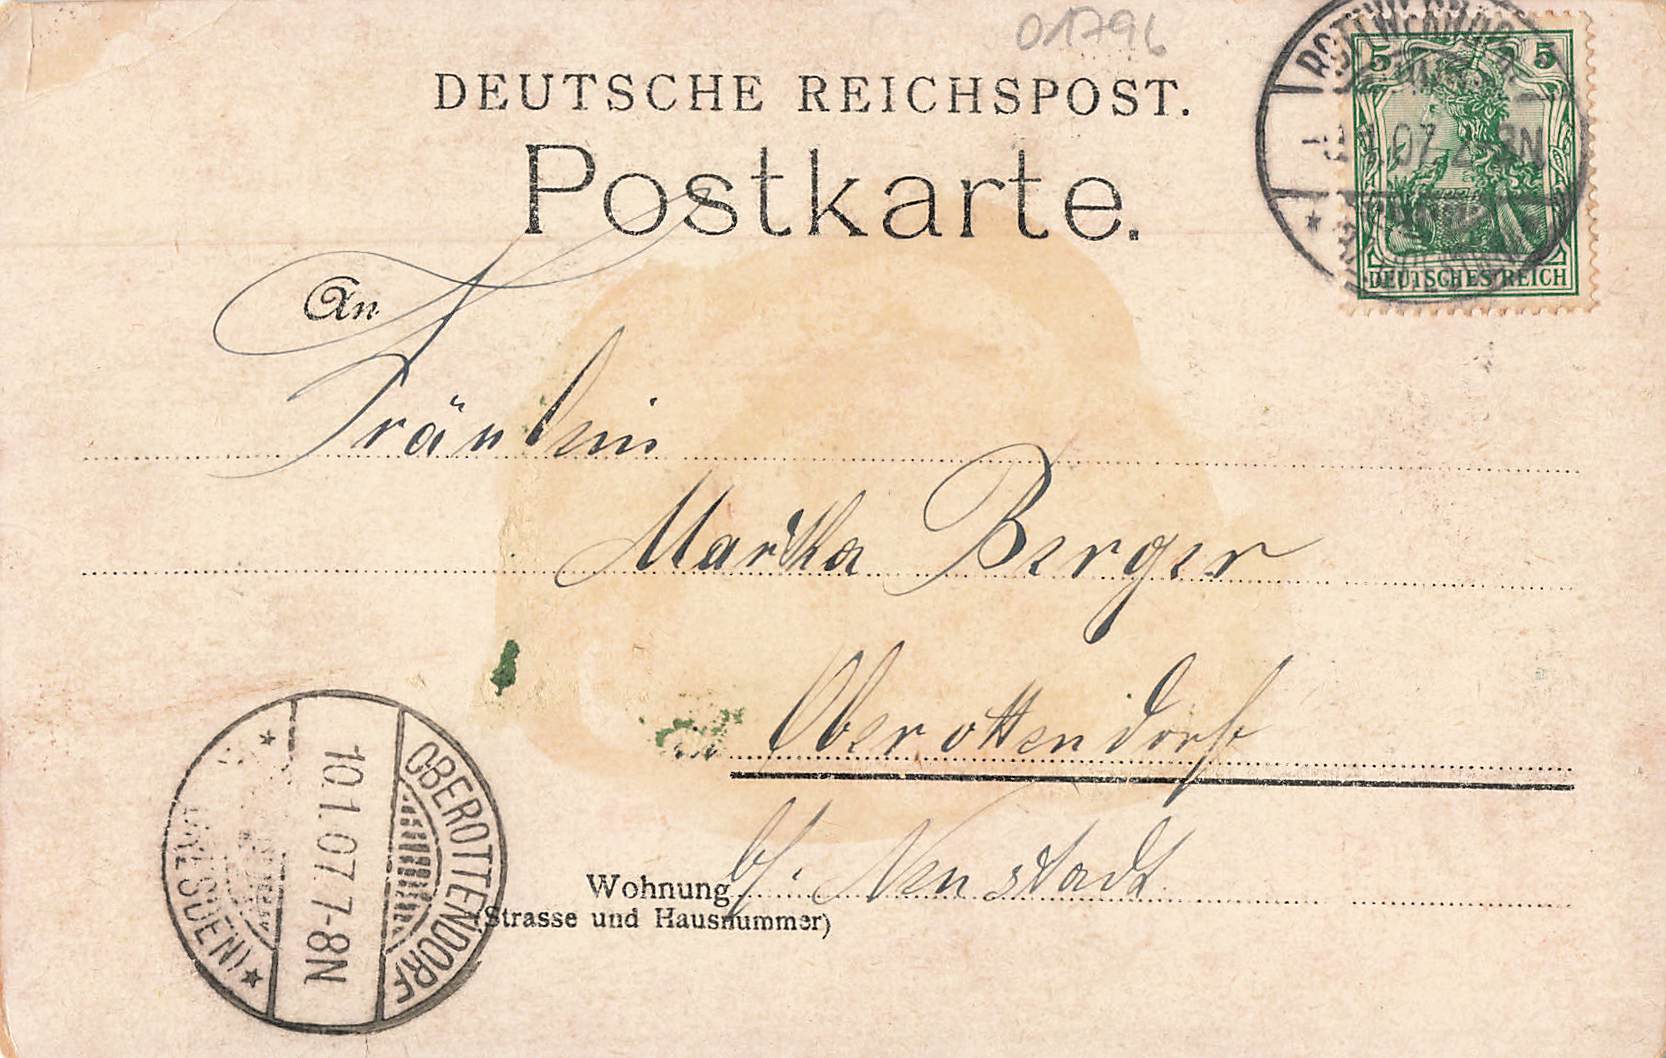 01796
DEUTSCHE REICHSPOST.
Postkarte.
5 5
07
DEUTSCHES REICH
An
Fräulein
Martha Berger
Oberottendorf
b/. Neustadt
Wohnung
(Strasse und Hausnummer)
OBEROTTENDORF
10.1.07.7-8N
(DRESDEN)